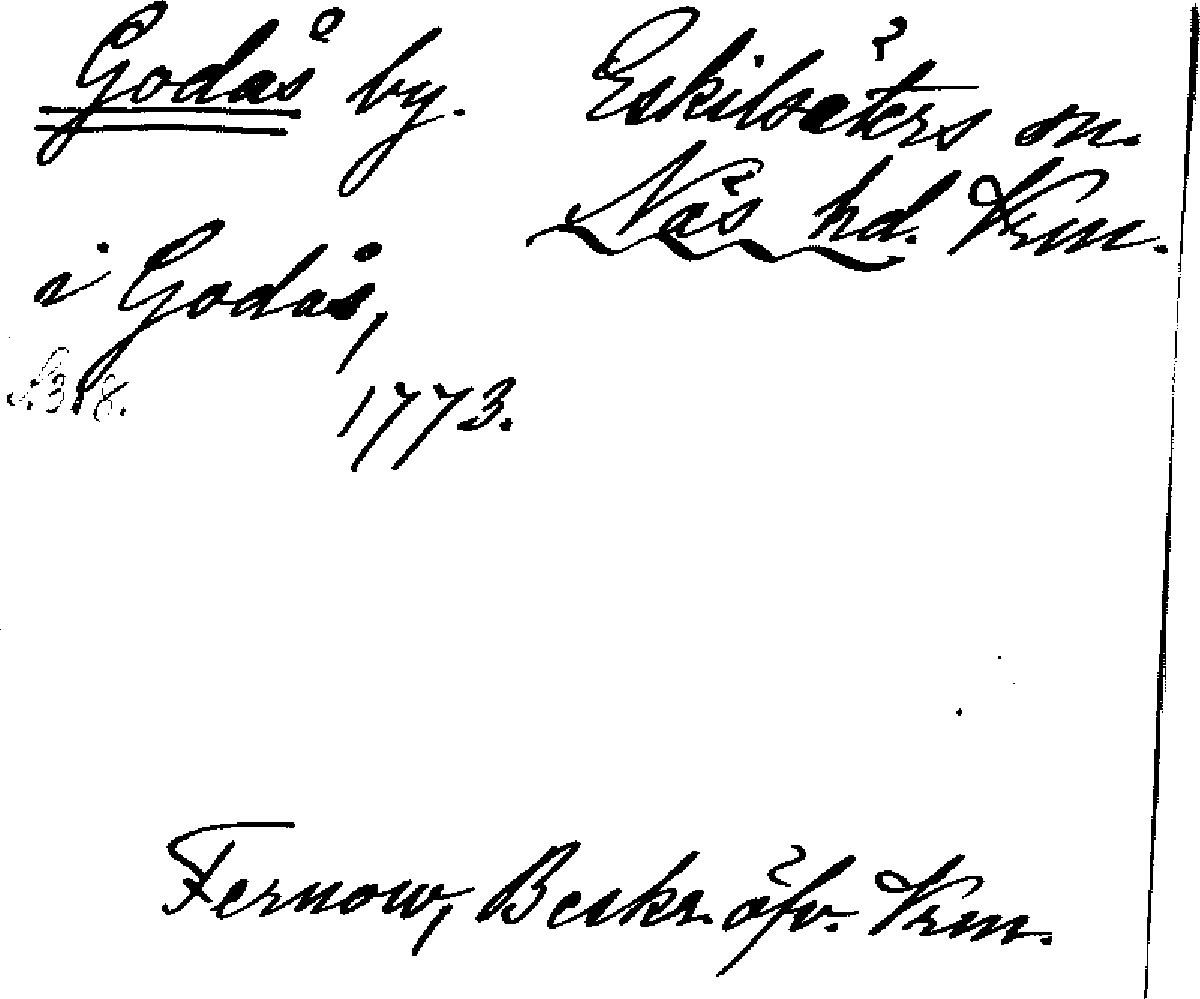 Godås by. Eskilsäters sn.
Näs hd. Vrm.
i Godås,
1773.
Fernow, Beskr. öfv. Vrm.